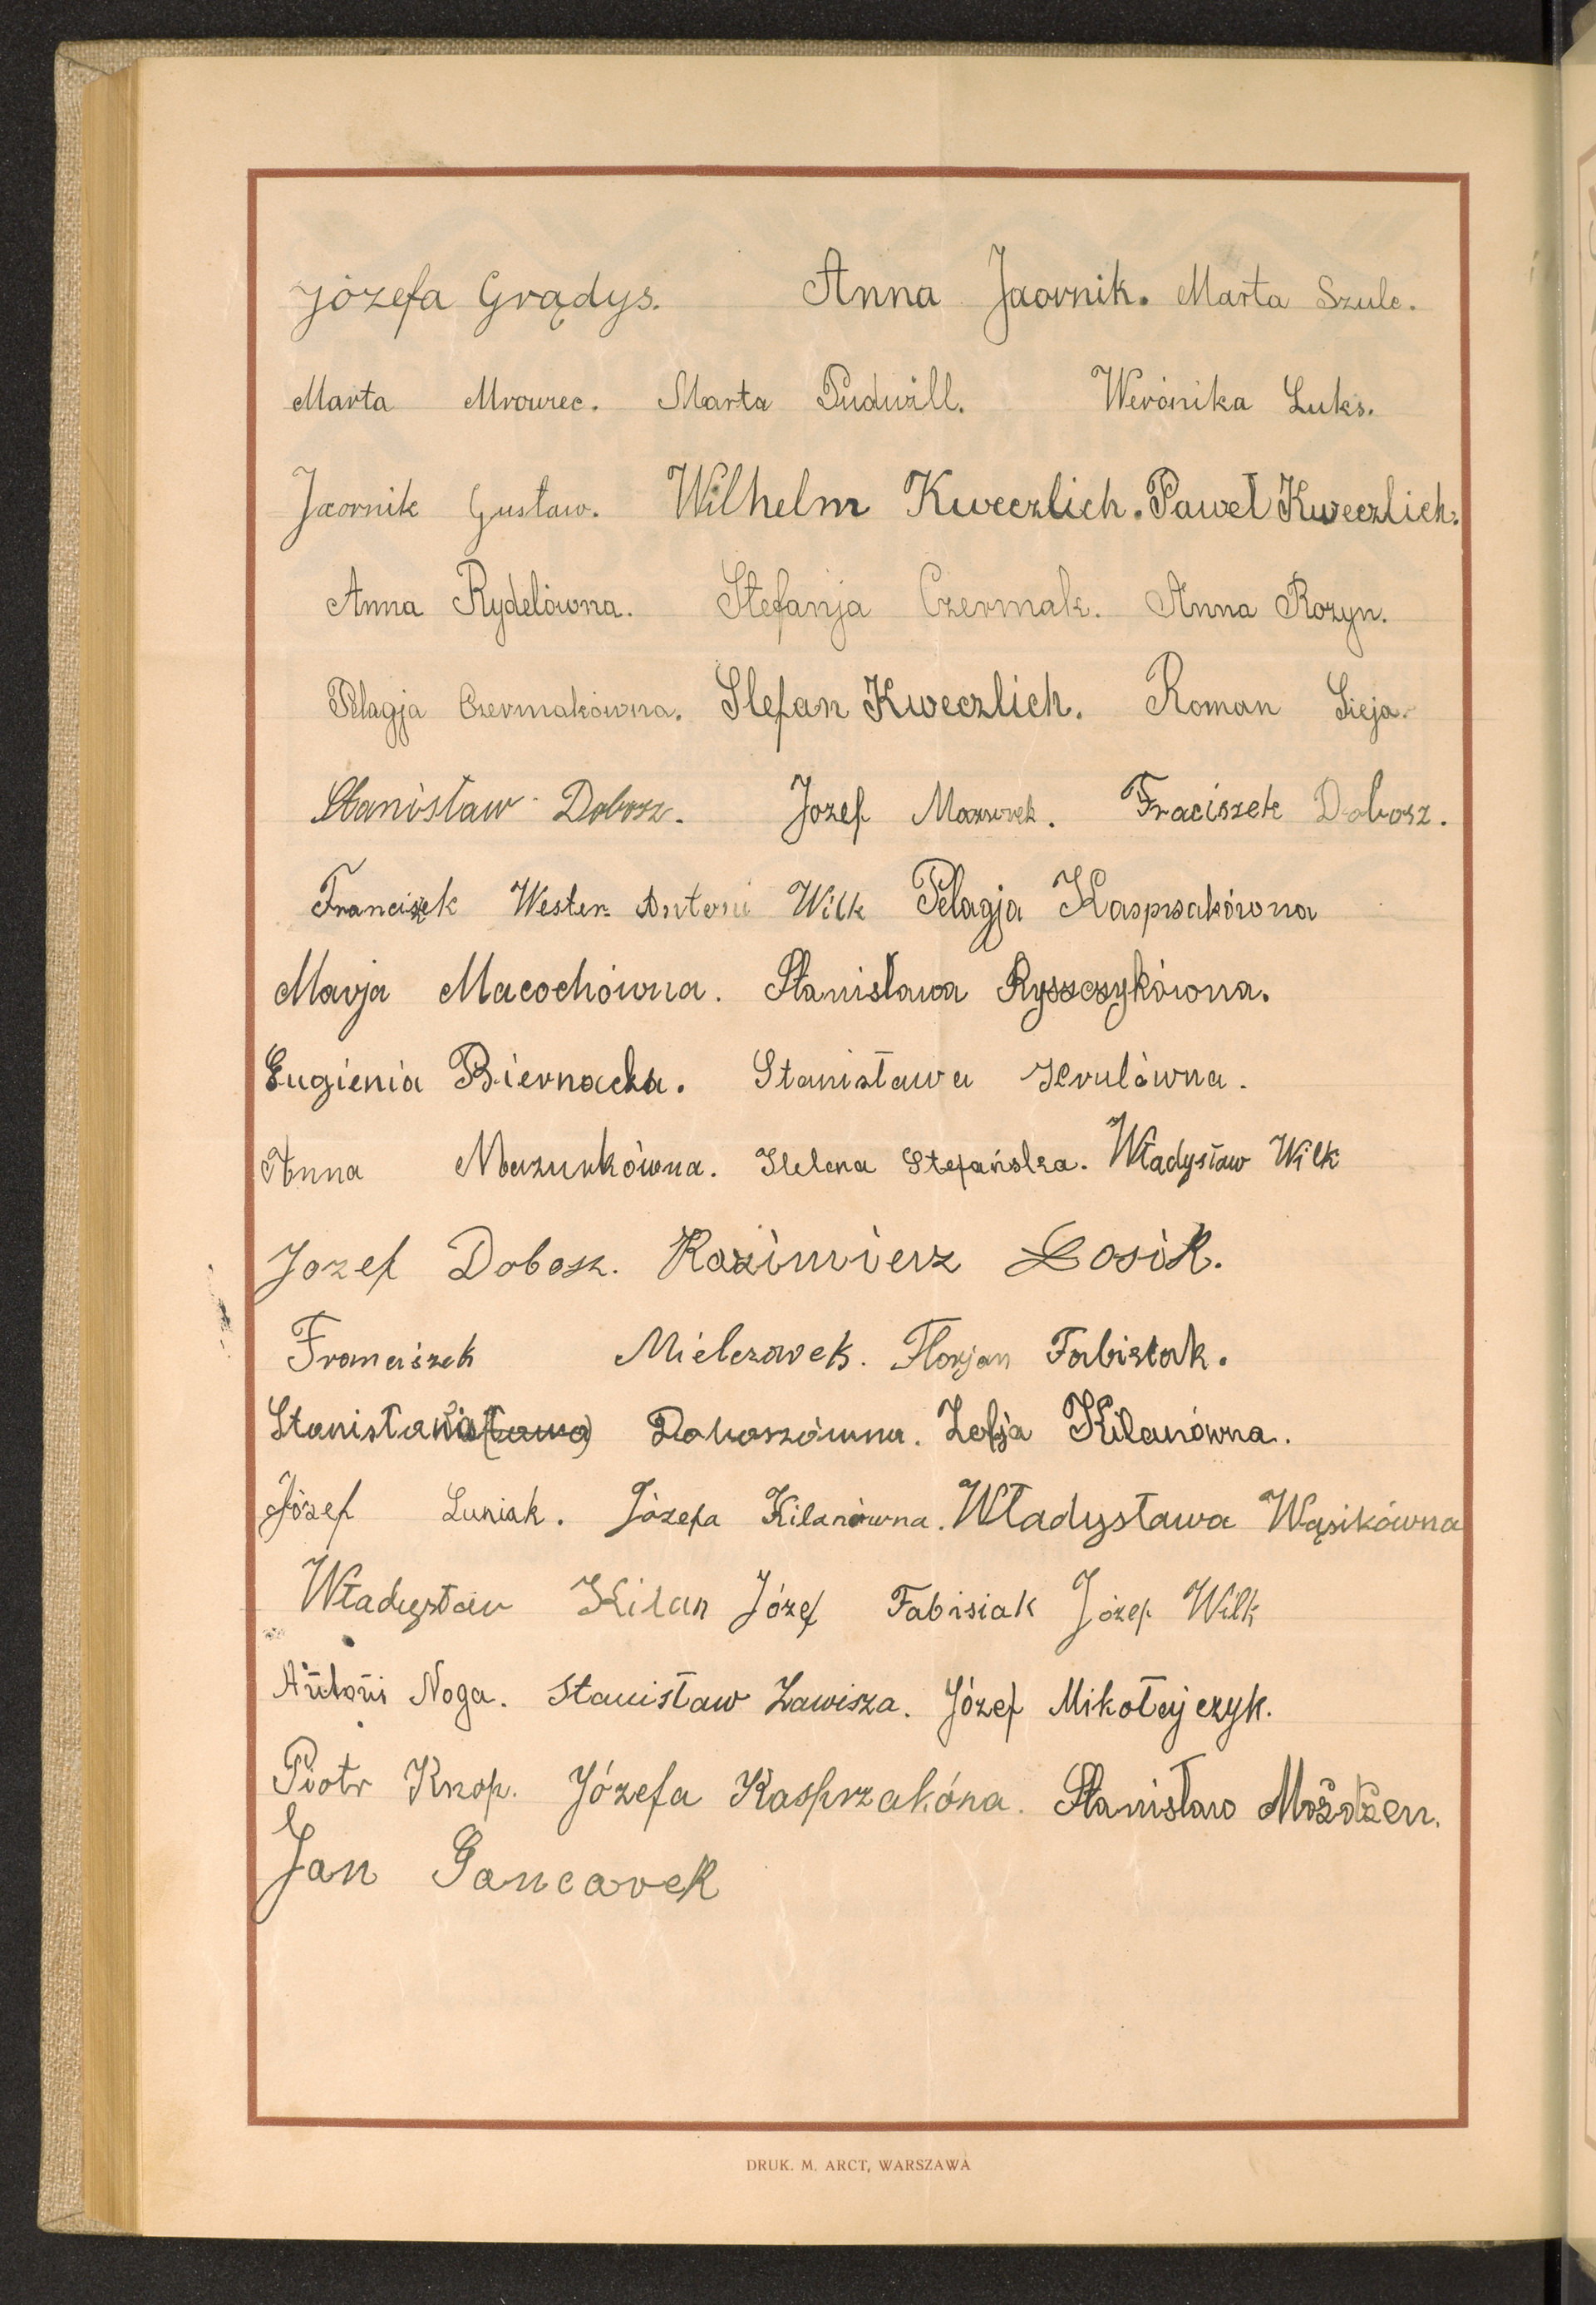 Józefa Grądys. Anna Jaornik. Marta Szulc.
Marta Mrowiec. Marta Pudwill. Weronika Luks.
Jaornik Gustaw. Wilhelm Kweczlich. Paweł Kweczlich.
Anna Rydelówna. Stefanja Czermak. Anna Rozyn.
Pelagja Czermakówna. Stefan Kweczlich. Roman Sieja.
Stanisław Dobosz. Jozef Mazurek. Fraciszek Dobosz.
Franciszek Wester Antoni Wilk Pelagja Kasprsakówna
Marja Macochówna. Stanisława Rysscsykówna.
Eugienia Biernacka. Stanisława Krulówna.
Anna Mazurkówna. Helena Stefańska. Władysław Wilk
Jozef Dobosz. Kazimierz Łosik.
Franciszek Mielczarek. Florjan Fabisiak.
Stanisława Doboszówna. Zofja Kilanówna.
Józef Luniak. Józefa Kilanówna. Władysława Wąsikówna
Władysław Kilan Józef Fabisiak Józef Wilk
Antoni Noga. Stanisław Zawisza. Józef Mikołajczyk.
Piotr Knop. Józefa Kasprzakóna. Stanisław Możdżen.
Jan Gancarek
DRUK. M. ARCT, WARSZAWA